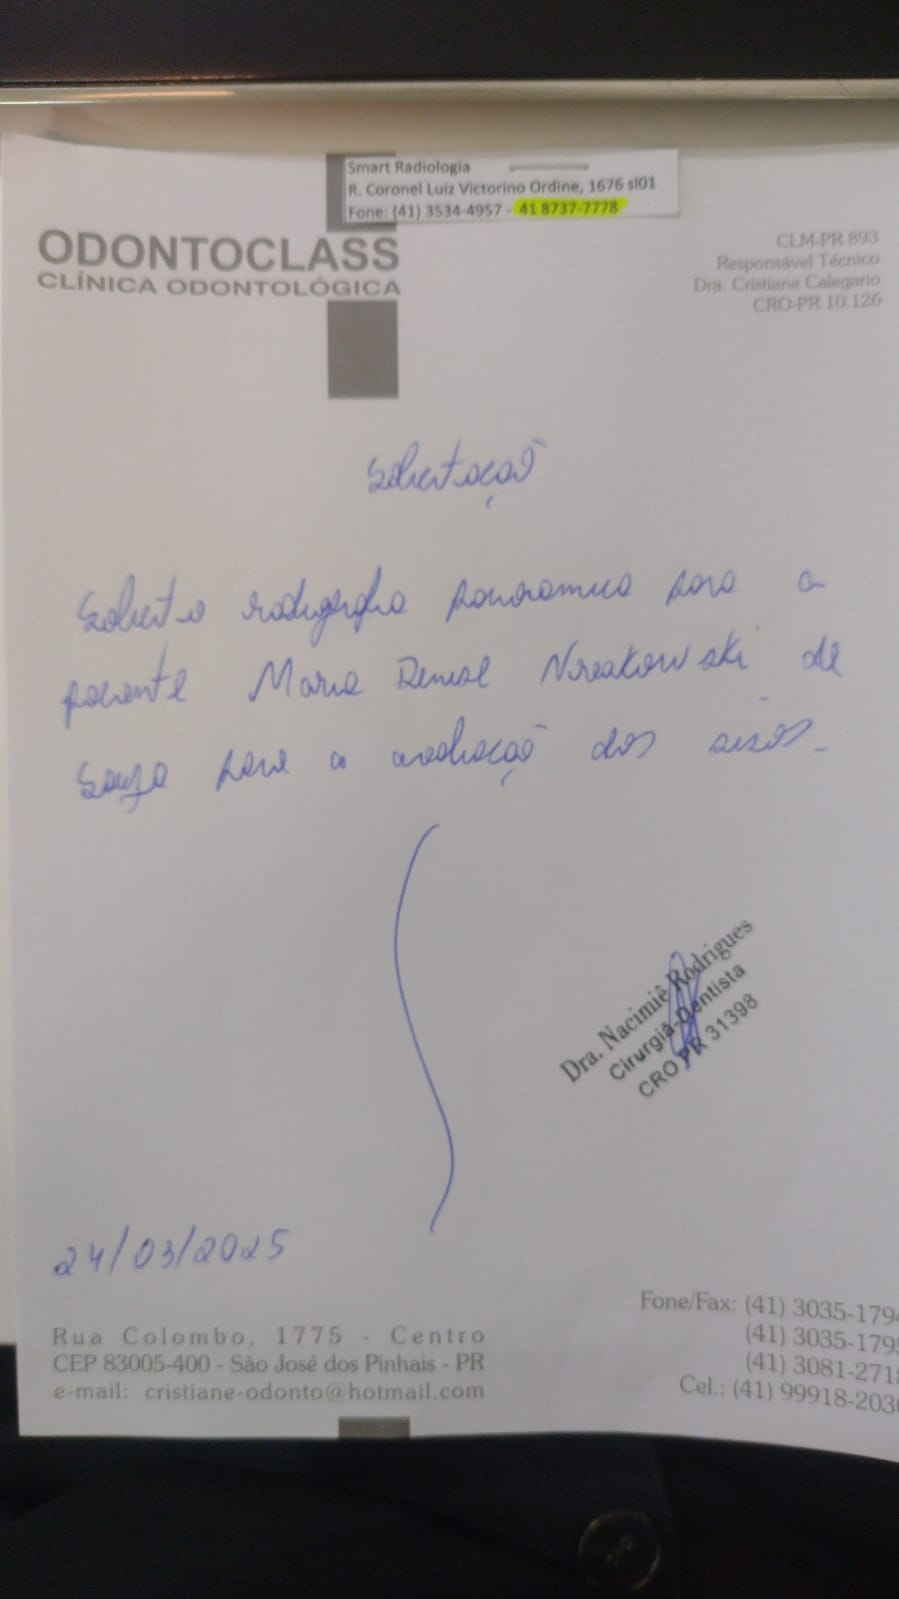 Smart Radiologia
R. Coronel Luiz Victorino Ordine, 1676 sl01
Fone: (41) 3534-4957 - 41 8737-7778
ODONTOCLASS
CLÍNICA ODONTOLÓGICA
CLM-PR 893
Responsável Técnico
Dra. Cristiane Calegario
CRO-PR 10.126
Solicitação
Solicito radiografia panoramica para a
paciente Maria Denise de
Souza para a avaliação dos sisos.
Dra. Nacimiê Rodrigues
Cirurgiã-Dentista
CRO PR 31398
24/03/2025
Rua Colombo, 1775 - Centro
CEP 83005-400 - São José dos Pinhais - PR
e-mail: cristiane-odonto@hotmail.com
Fone/Fax: (41) 3035-179
(41) 3035-179
(41) 3081-271
Cel.: (41) 99918-203